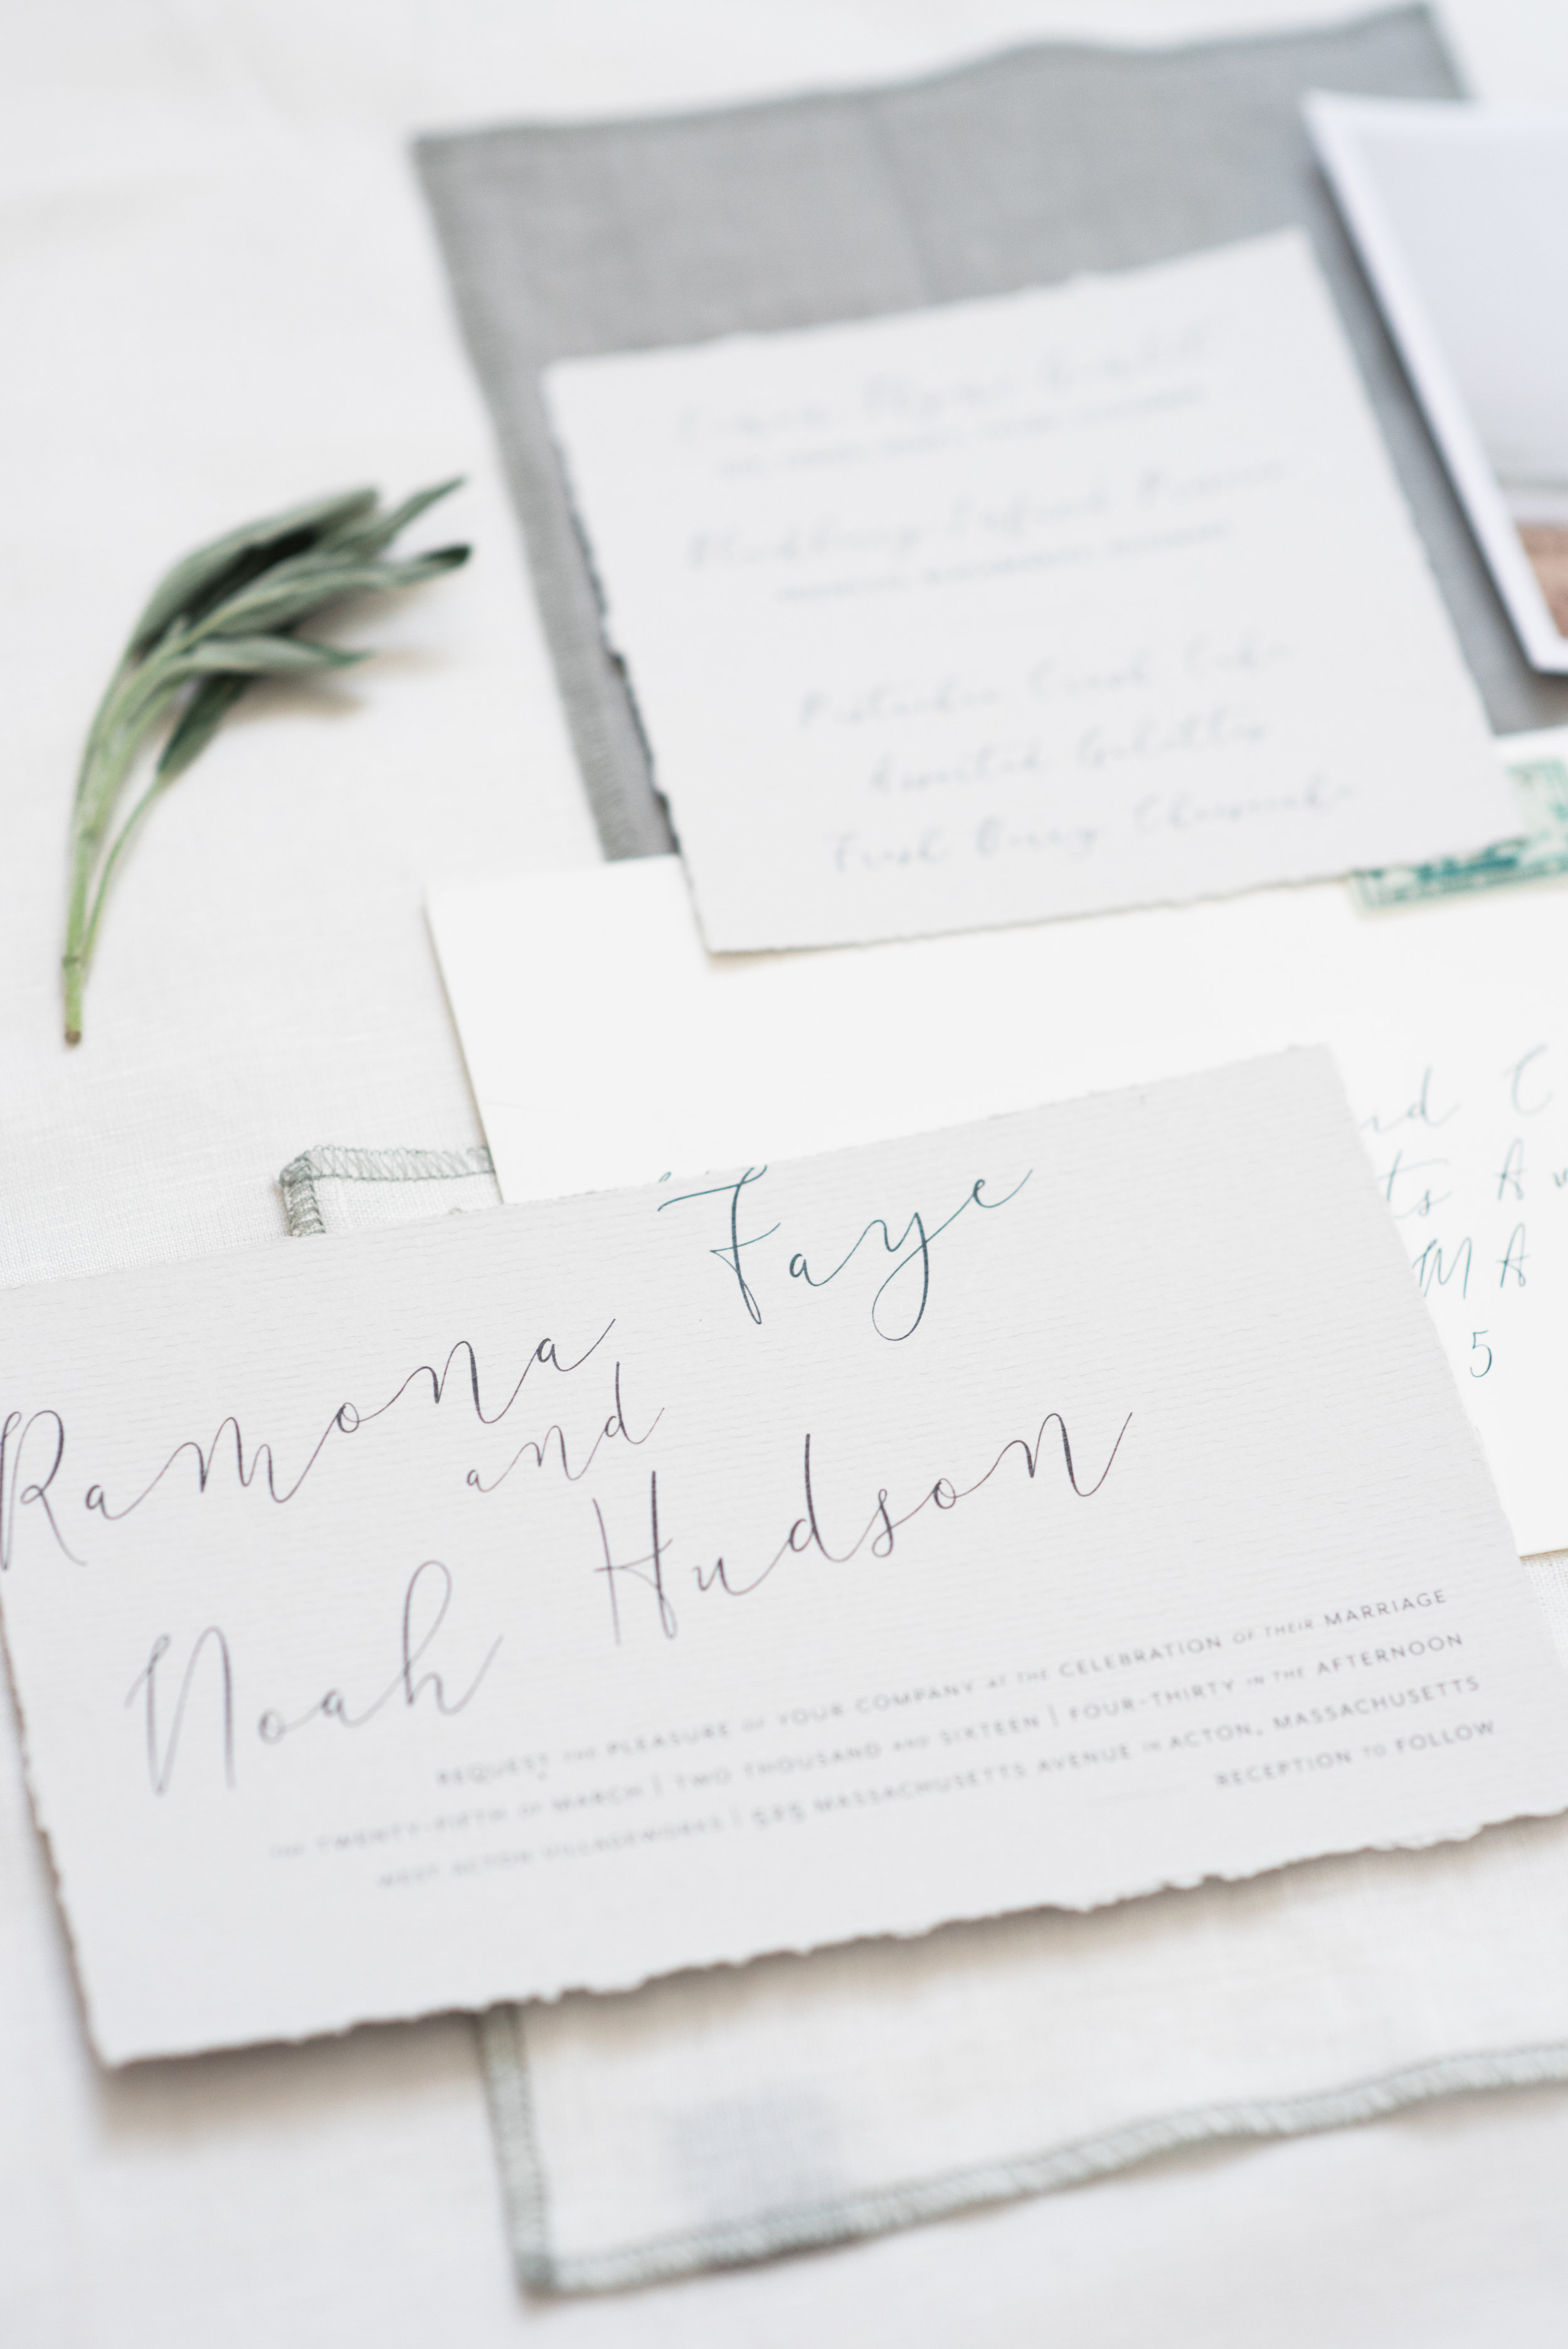 Pistachio Crush Cake
Assorted Galettes
Fresh Berry Cheesecake
nd C
ts Av
MA
5
Ramona Faye
and
Noah Hudson
REQUEST THE PLEASURE OF YOUR COMPANY AT THE CELEBRATION OF THEIR MARRIAGE
THE TWENTY-FIFTH OF MARCH | TWO THOUSAND AND SIXTEEN | FOUR-THIRTY IN THE AFTERNOON
WEST ACTON VILLAGEWORKS | 525 MASSACHUSETTS AVENUE IN ACTON, MASSACHUSETTS
RECEPTION TO FOLLOW